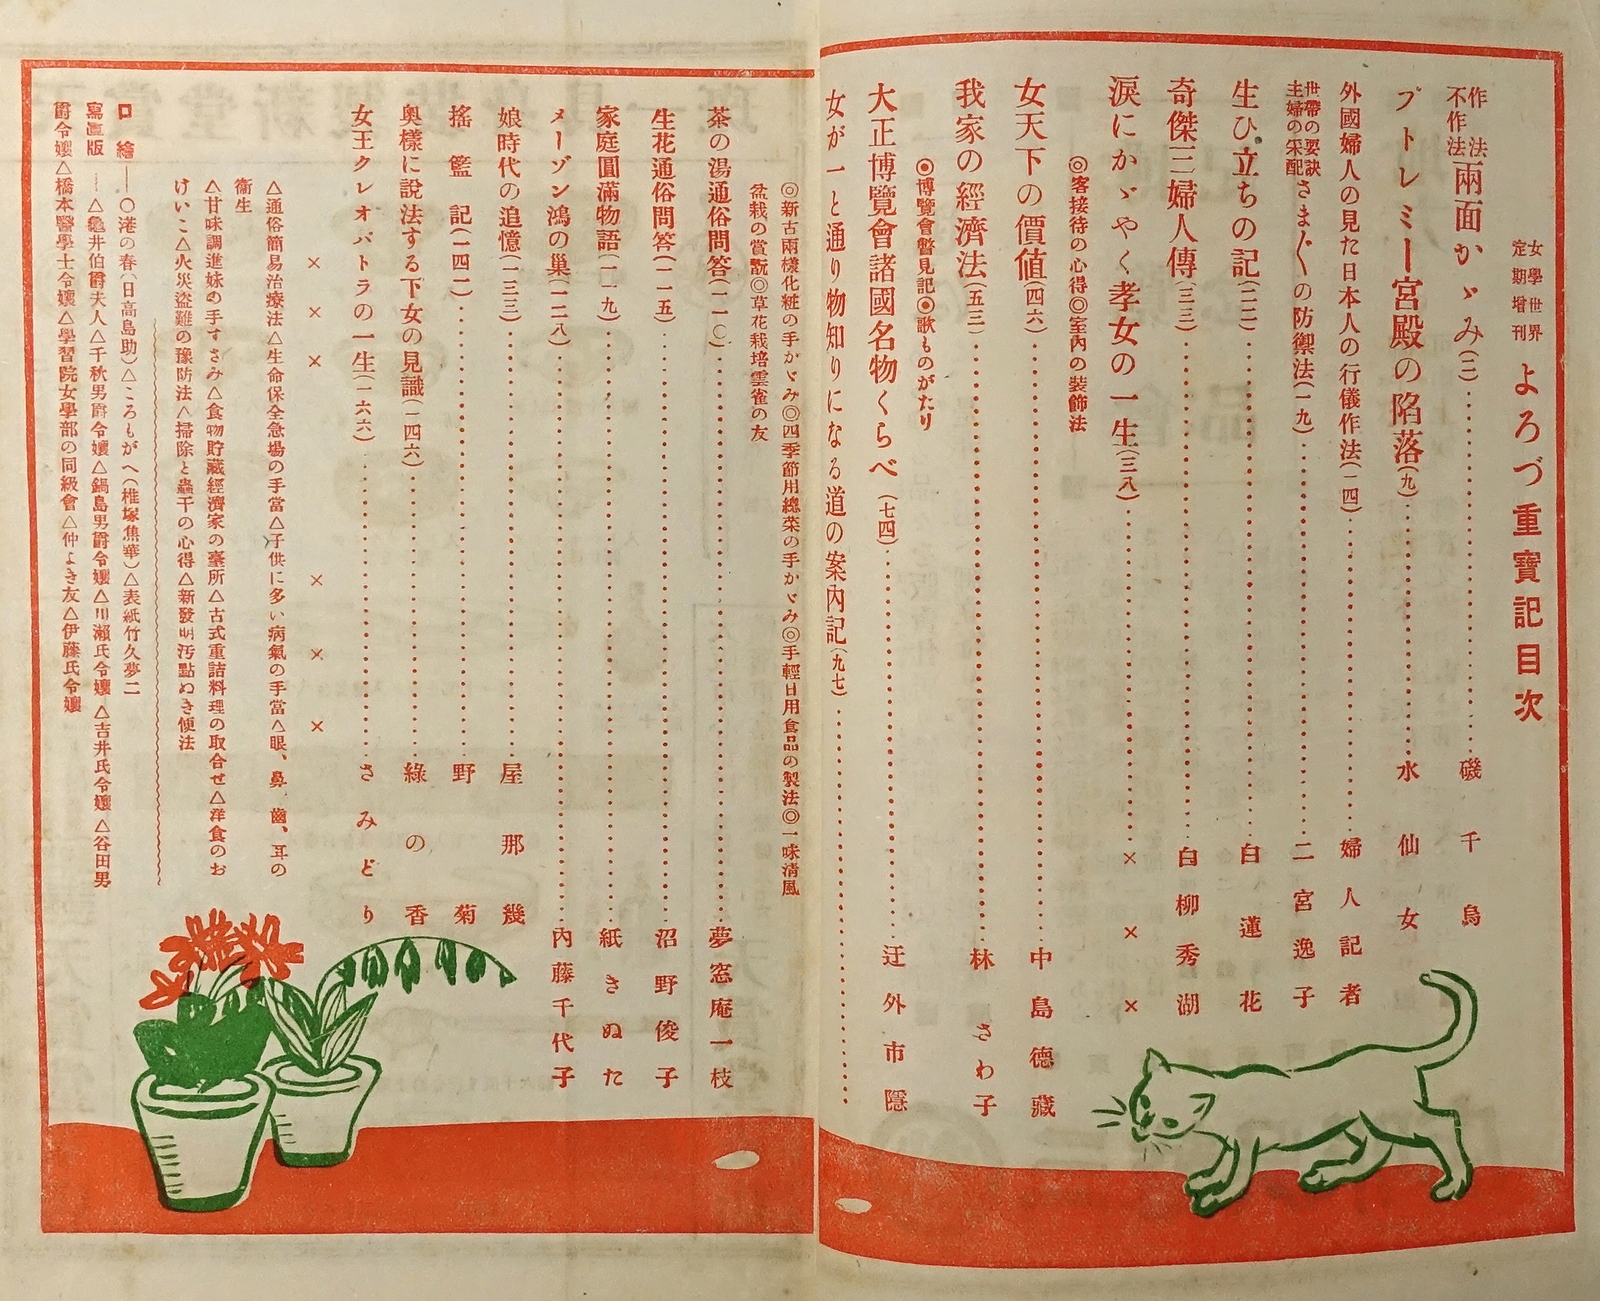 女學世界定期增刊 よろづ重寶記目次
作法不作法兩面かゞみ(三)………磯千鳥
プトレミー宮殿の陷落(九)………水仙女
外國婦人の見た日本人の行儀作法(一四)………婦人記者
世帶の要訣主婦の采配さま〴〵の防禦法(一九)………二宮逸子
生ひ立ちの記(二二)………白蓮花
奇傑三婦人傳(三三)………白柳秀湖
淚にかゞやく孝女の一生(三八)………×××
◎客接待の心得◎室內の裝飾法
女天下の價値(四六)………中島德藏
我家の經濟法(五三)………林さわ子
◎博覽會瞥見記◎歌ものがたり
大正博覽會諸國名物くらべ(七四)………迂外市隱
女が一と通り物知りになる道の案內記(九七)………
◎新古兩樣化粧の手かゞみ◎四季節用總菜の手かゞみ◎手輕日用食品の製法◎一味淸風
盆栽の賞翫◎草花栽培雲雀の友
茶の湯通俗問答(一一〇)………夢窓庵一枝
生花通俗問答(一一五)………沼野俊子
家庭圓滿物語(一一九)………紙きぬた
メーゾン鴻の巢(一二八)………內藤千代子
娘時代の追憶(一三三)………屋那幾
搖籃記(一四二)………野菊
奧樣に說法する下女の見識(一四六)………綠の香
女王クレオパトラの一生(一六六)………さみどり
××××××
△通俗簡易治療法△生命保全急場の手當△子供に多い病氣の手當△眼、鼻、齒、耳の
衞生
△甘味調進妹の手すさみ△食物貯藏經濟家の臺所△古式重詰料理の取合せ△洋食のお
けいこ△火災盜難の豫防法△掃除と蟲干の心得△新發明汚點ぬき便法
口繪——○港の春(日高島助)△ころもがへ(椎塚焦華)△表紙竹久夢二
寫眞版——△龜井伯爵夫人△千秋男爵令孃△鍋島男爵令孃△川瀨氏令孃△吉井氏令孃△谷田男
爵令孃△橋本醫學士令孃△學習院女學部の同級會△仲よき友△伊藤氏令孃